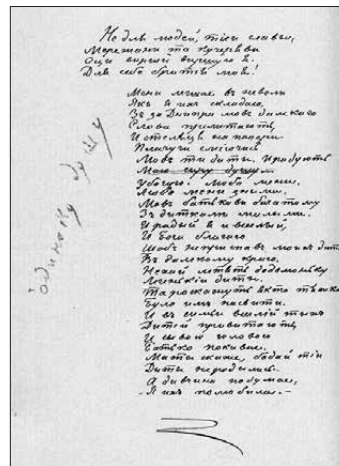 Не для людей, тіеи славы,
Мережани та кучеряви
Оци вирши виршую я.
Для себе братія моя!
Мени легшае въ неволи
Якъ я ихъ складаю,
Зъ за Днипра мовъ далекого
Слова прилитаютъ,
И стеляця на папери
Плачучи смiючись
Мовъ ти диты. И радуютъ
Мою сиру душу
Одиноку душу
Убогую. Любо мени.
Любо мени зъ ними.
Мовъ батькови багатому
Зъ дитками малыми.
И радый я и веселый,
И Бога благаю
Щобъ не приспавъ моихъ дитокъ
Въ далекому краю.
Нехай летять додомоньку
Легенькiи диты.
Та роскажуть якъ то тяжко
Було имъ на свити.
И въ семьи веселiй тихо
Дитей привитають,
И сивою головою
Батько покивае.
Мати скаже, бодай тiи
Диты не родились.
А дивчина подумае,
Я ихъ полюбила.